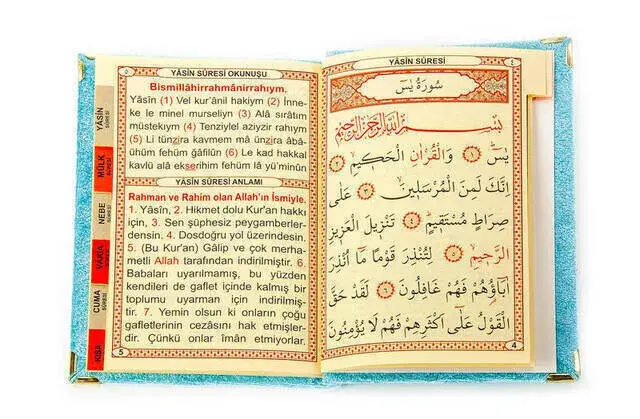 ٥ YÂSİN SÛRESİ OKUNUŞU
Bismillâhirrahmânirrahıym.
Yâsîn (1) Vel kur'ânil hakiym (2) İnne-
ke le minel murseliyn (3) Alâ sırâtım
müstekıym (4) Tenziylel aziyzir rahıym
(5) Li tünzira kavmem mâ ünzira âbâ-
ühüm fehüm ğâfilûn (6) Le kad hakkal
kavlü alâ ekserihim fehüm lâ yü'minûn
YÂSİN SÛRESİ ANLAMI
Rahman ve Rahim olan Allah'ın İsmiyle.
1. Yâsîn, 2. Hikmet dolu Kur'an hakkı
için, 3. Sen şüphesiz peygamberler-
densin. 4. Dosdoğru yol üzerindesin.
5. (Bu Kur'an) Gâlip ve çok merha-
metli Allah tarafından indirilmiştir. 6.
Babaları uyarılmamış, bu yüzden
kendileri de gaflet içinde kalmış bir
toplumu uyarman için indirilmiş-
tir. 7. Yemin olsun ki onların çoğu
gafletlerinin cezâsını hak etmişler-
dir. Çünkü onlar îman etmiyorlar.
5
YÂSİN
SÛRESİ
MÜLK
SÛRESİ
NEBE
SÛRESİ
VÂKIA
SÛRESİ
CUMA
SÛRESİ
KISA
YÂSİN SÛRESİ ٤
سُورَةُ يٰسٓ
بِسْمِ اللهِ الرَّحْمٰنِ الرَّحِيمِ
يٰسٓ ﴿١﴾ وَالْقُرْاٰنِ الْحَكِيمِ ﴿٢﴾
اِنَّكَ لَمِنَ الْمُرْسَلِينَ ﴿٣﴾ عَلٰى
صِرَاطٍ مُسْتَقِيمٍ ﴿٤﴾ تَنْزِيلَ الْعَزِيزِ
الرَّحِيمِ ﴿٥﴾ لِتُنْذِرَ قَوْمًا مَٓا اُنْذِرَ
اٰبَٓاؤُهُمْ فَهُمْ غَافِلُونَ ﴿٦﴾ لَقَدْ حَقَّ
الْقَوْلُ عَلٰٓى اَكْثَرِهِمْ فَهُمْ لَا يُؤْمِنُونَ
4